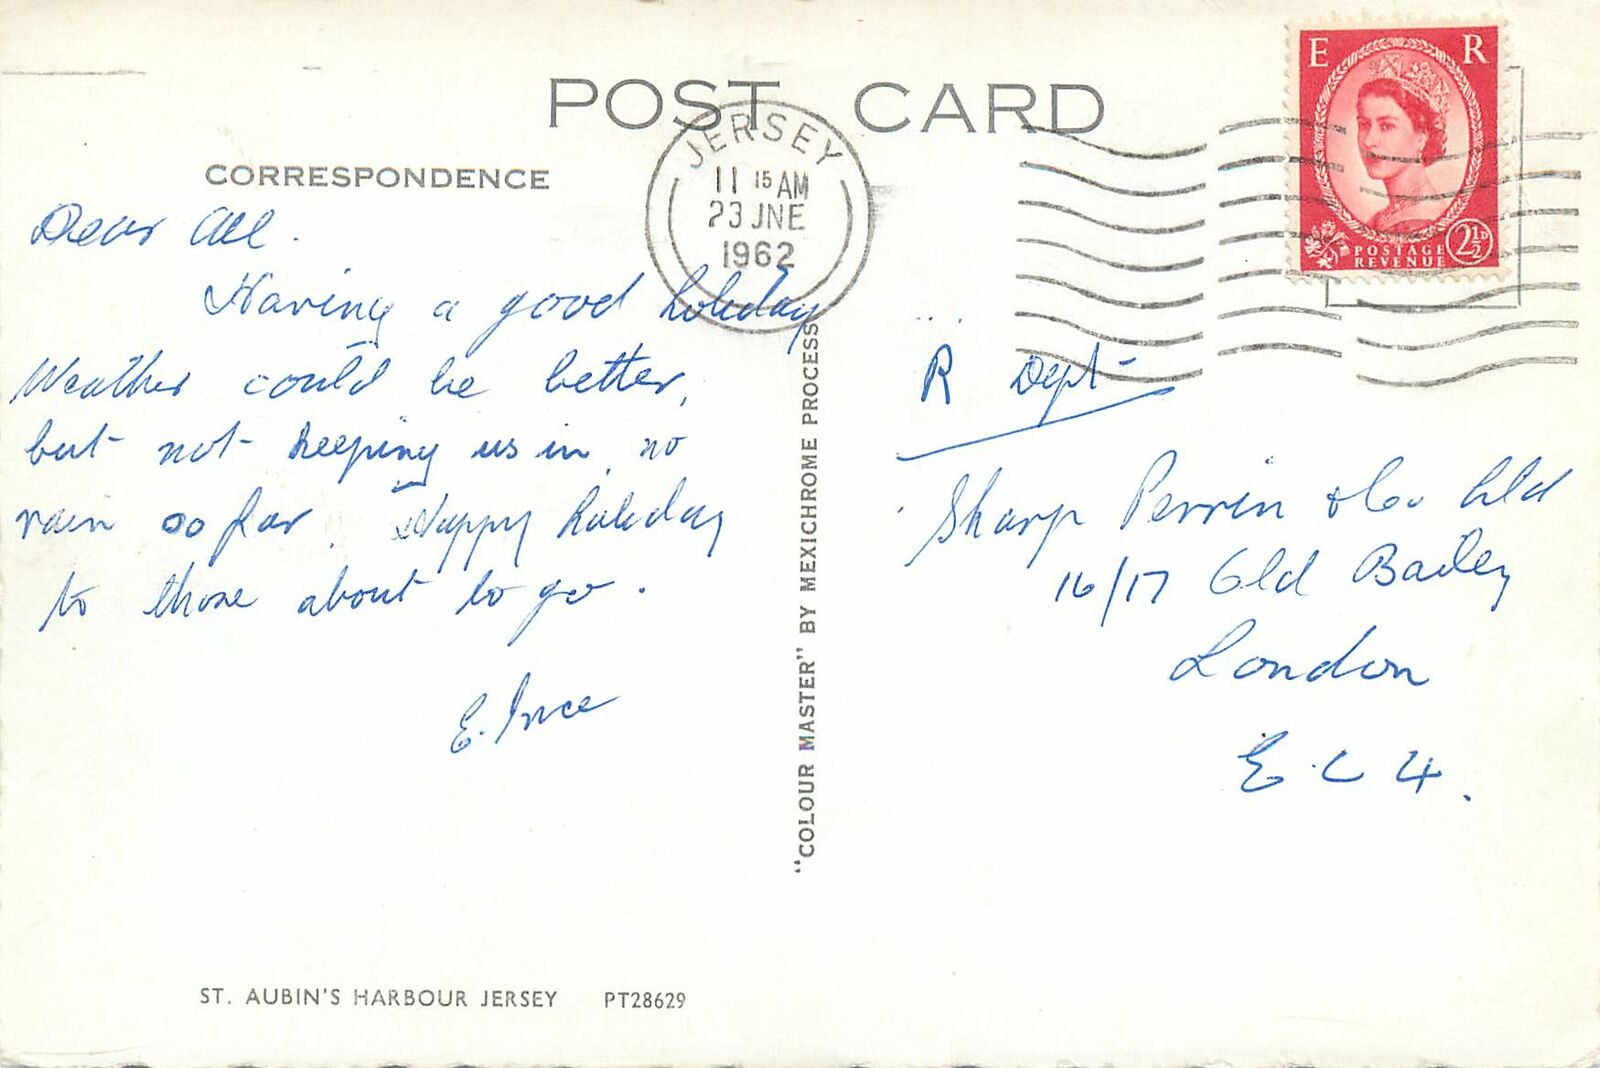 POST CARD
CORRESPONDENCE
JERSEY
11 15 AM
23 JNE
1962
E R
POSTAGE
REVENUE
2½D
Dear All.
Having a good holiday
Weather could be better,
but not keeping us in, no
rain so far. Happy holiday
to those about to go.
E. Ince
"COLOUR MASTER" BY MEXICHROME PROCESS
R Dept
Sharp Perrin & Co Ltd
16/17 Old Bailey
London
E C 4.
ST. AUBIN'S HARBOUR JERSEY PT28629